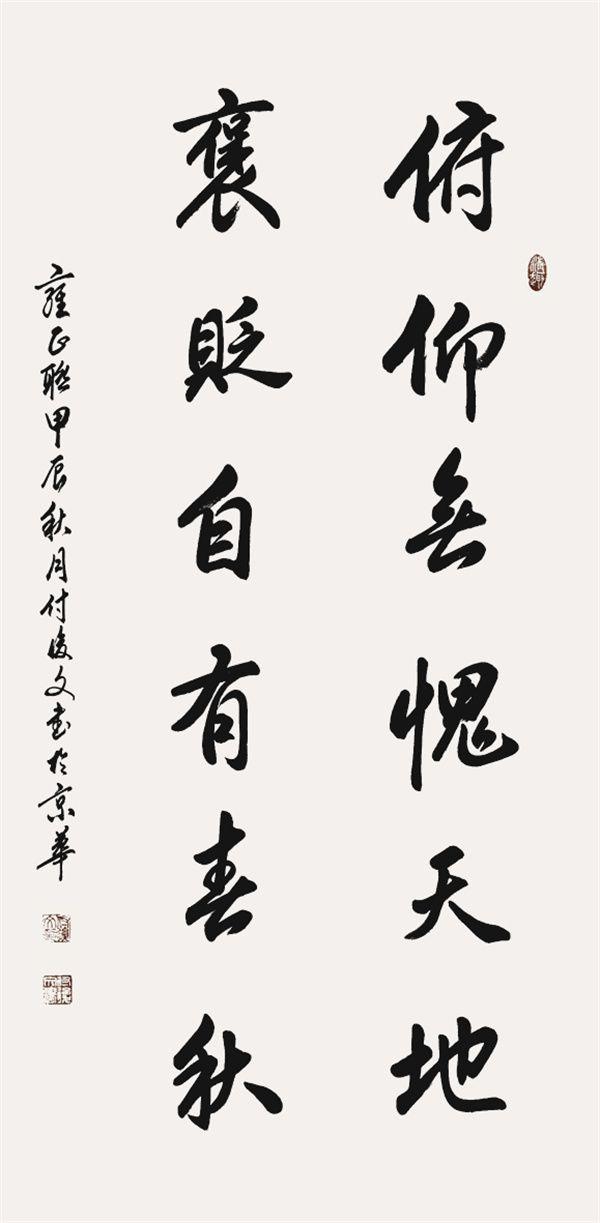 俯仰無愧天地
褒貶自有春秋
雍正聯甲辰秋月付俊文书於京華